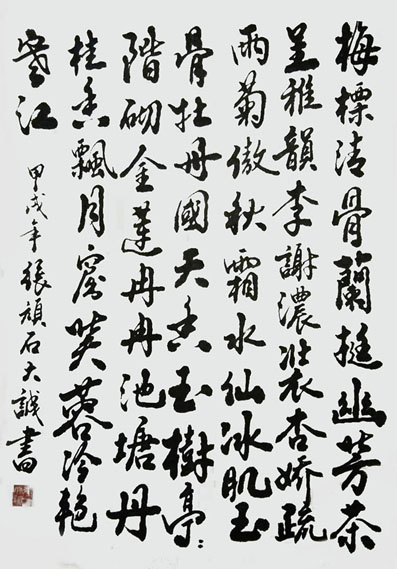 梅標清骨蘭挺幽芳茶
呈雅韻李謝濃妝杏嬌疏
雨菊傲秋霜水仙冰肌玉
骨牡丹國天香玉樹亭:
階砌金蓮冉冉池塘丹
桂香飄月窟芙蓉冷艷
寒江
甲戌年張頑石大誠書